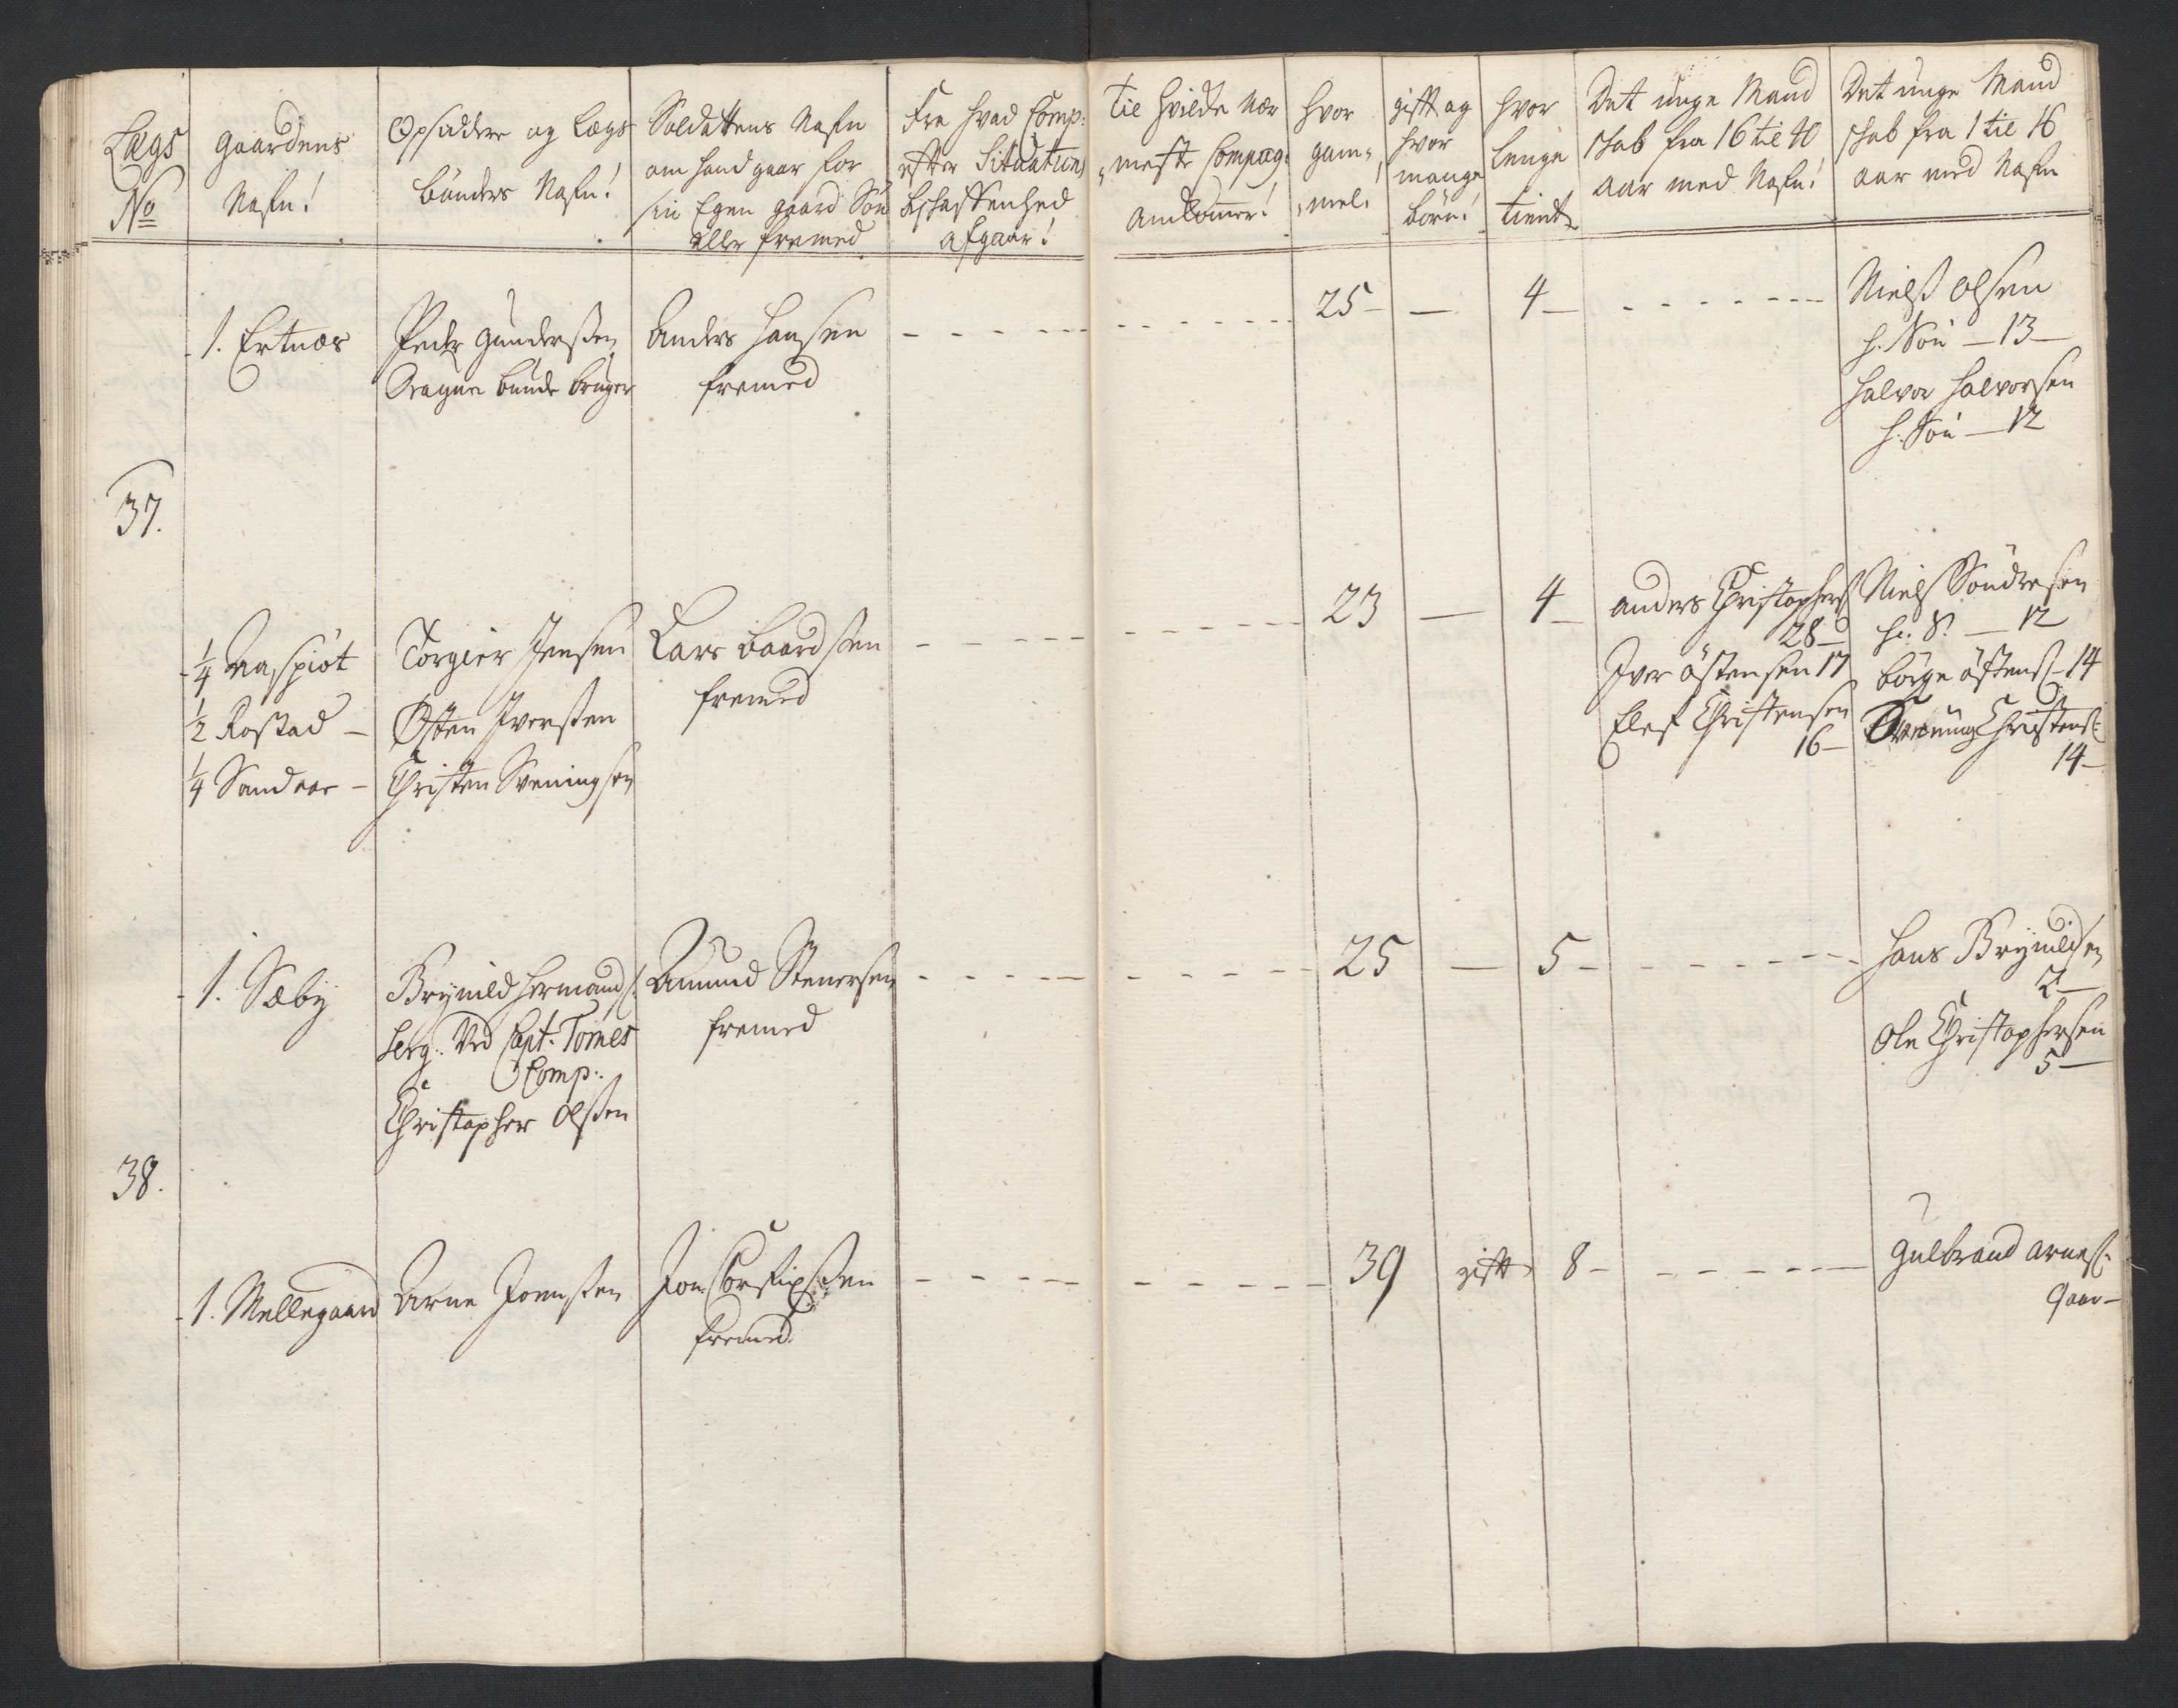 Lægs
No
Gaardens
Nafn!
Opsidder og Lægs
bönders Nafn!
Soldattens Nafn
om hand gaar for
sin Egen gaard Sön
eller fremed
Fra hvad Comp:
efter Situations
beskaffenhed
afgaar!
Til hvilcke nær
meste Compag:
ankommer!
hvor
gam-
mel.
gift og
hvor
mange
börn!
hvor
lenge
tient
Det unge Mand
skab fra 16 til 40
aar med Nafn!
Det unge Mand
skab fra 1 til 16
aar med Nafn
37.
1. Ertnæs
Peder Gundersen
bunde bruger
Anders Hansen
fremed
25 — — 4 —
Niels Olsen
h. Sön — 13 —
Halvor Halvorsen
h. Sön — 12
1/4 Naspiöt
1/2 Rostad —
1/4 Sandaar —
Torgier Jensen
Östen Iversen
Christen Sveningsen
Lars Baardsen
fremed
23 — 4 —
Anders Christophers
28 —
Iver Östensen 17
Elef Christensen
16 —
Niels Söndresen
h. S. — 12
Börge Östens: 14
Christens:
14 —
38.
1. Sæby
Brynild Hermands:
Serg: Ved Capt. Tomes
Comp:
Christopher Olsen
Amund Stenersen
fremed
25 — 5 —
Hans Brynildsen
2 —
Ole Christophersen
5 —
1. Mellegaard
Arne Joensen
Jon
fremed
39 gift 8 —
Gulbrand Arnes:
9 aar —